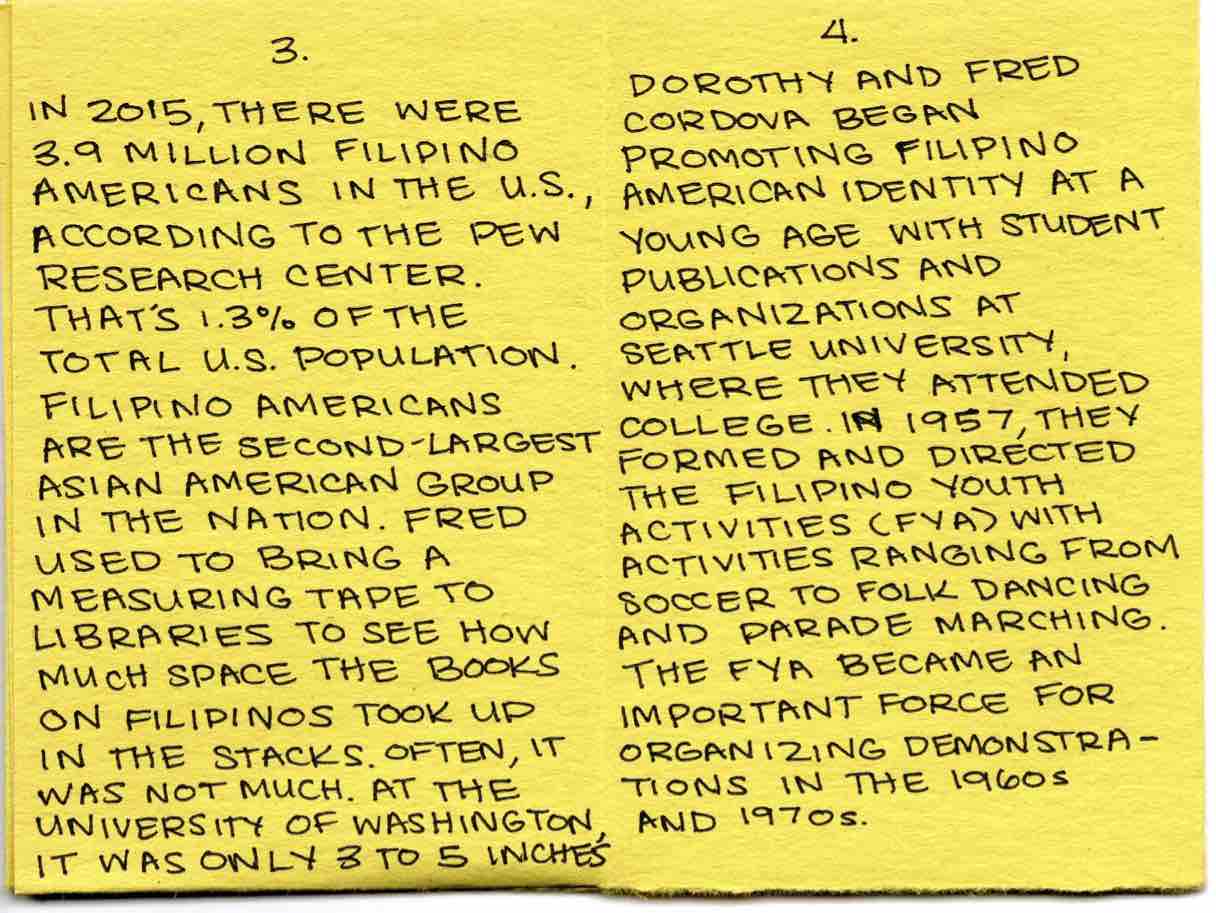 3.
IN 2015, THERE WERE
3.9 MILLION FILIPINO
AMERICANS IN THE U.S.,
ACCORDING TO THE PEW
RESEARCH CENTER.
THAT'S 1.3% OF THE
TOTAL U.S. POPULATION.
FILIPINO AMERICANS
ARE THE SECOND-LARGEST
ASIAN AMERICAN GROUP
IN THE NATION. FRED
USED TO BRING A
MEASURING TAPE TO
LIBRARIES TO SEE HOW
MUCH SPACE THE BOOKS
ON FILIPINOS TOOK UP
IN THE STACKS. OFTEN, IT
WAS NOT MUCH. AT THE
UNIVERSITY OF WASHINGTON,
IT WAS ONLY 3 TO 5 INCHES
4.
DOROTHY AND FRED
CORDOVA BEGAN
PROMOTING FILIPINO
AMERICAN IDENTITY AT A
YOUNG AGE WITH STUDENT
PUBLICATIONS AND
ORGANIZATIONS AT
SEATTLE UNIVERSITY,
WHERE THEY ATTENDED
COLLEGE. IN 1957, THEY
FORMED AND DIRECTED
THE FILIPINO YOUTH
ACTIVITIES (FYA) WITH
ACTIVITIES RANGING FROM
SOCCER TO FOLK DANCING
AND PARADE MARCHING.
THE FYA BECAME AN
IMPORTANT FORCE FOR
ORGANIZING DEMONSTRA-
TIONS IN THE 1960s
AND 1970s.